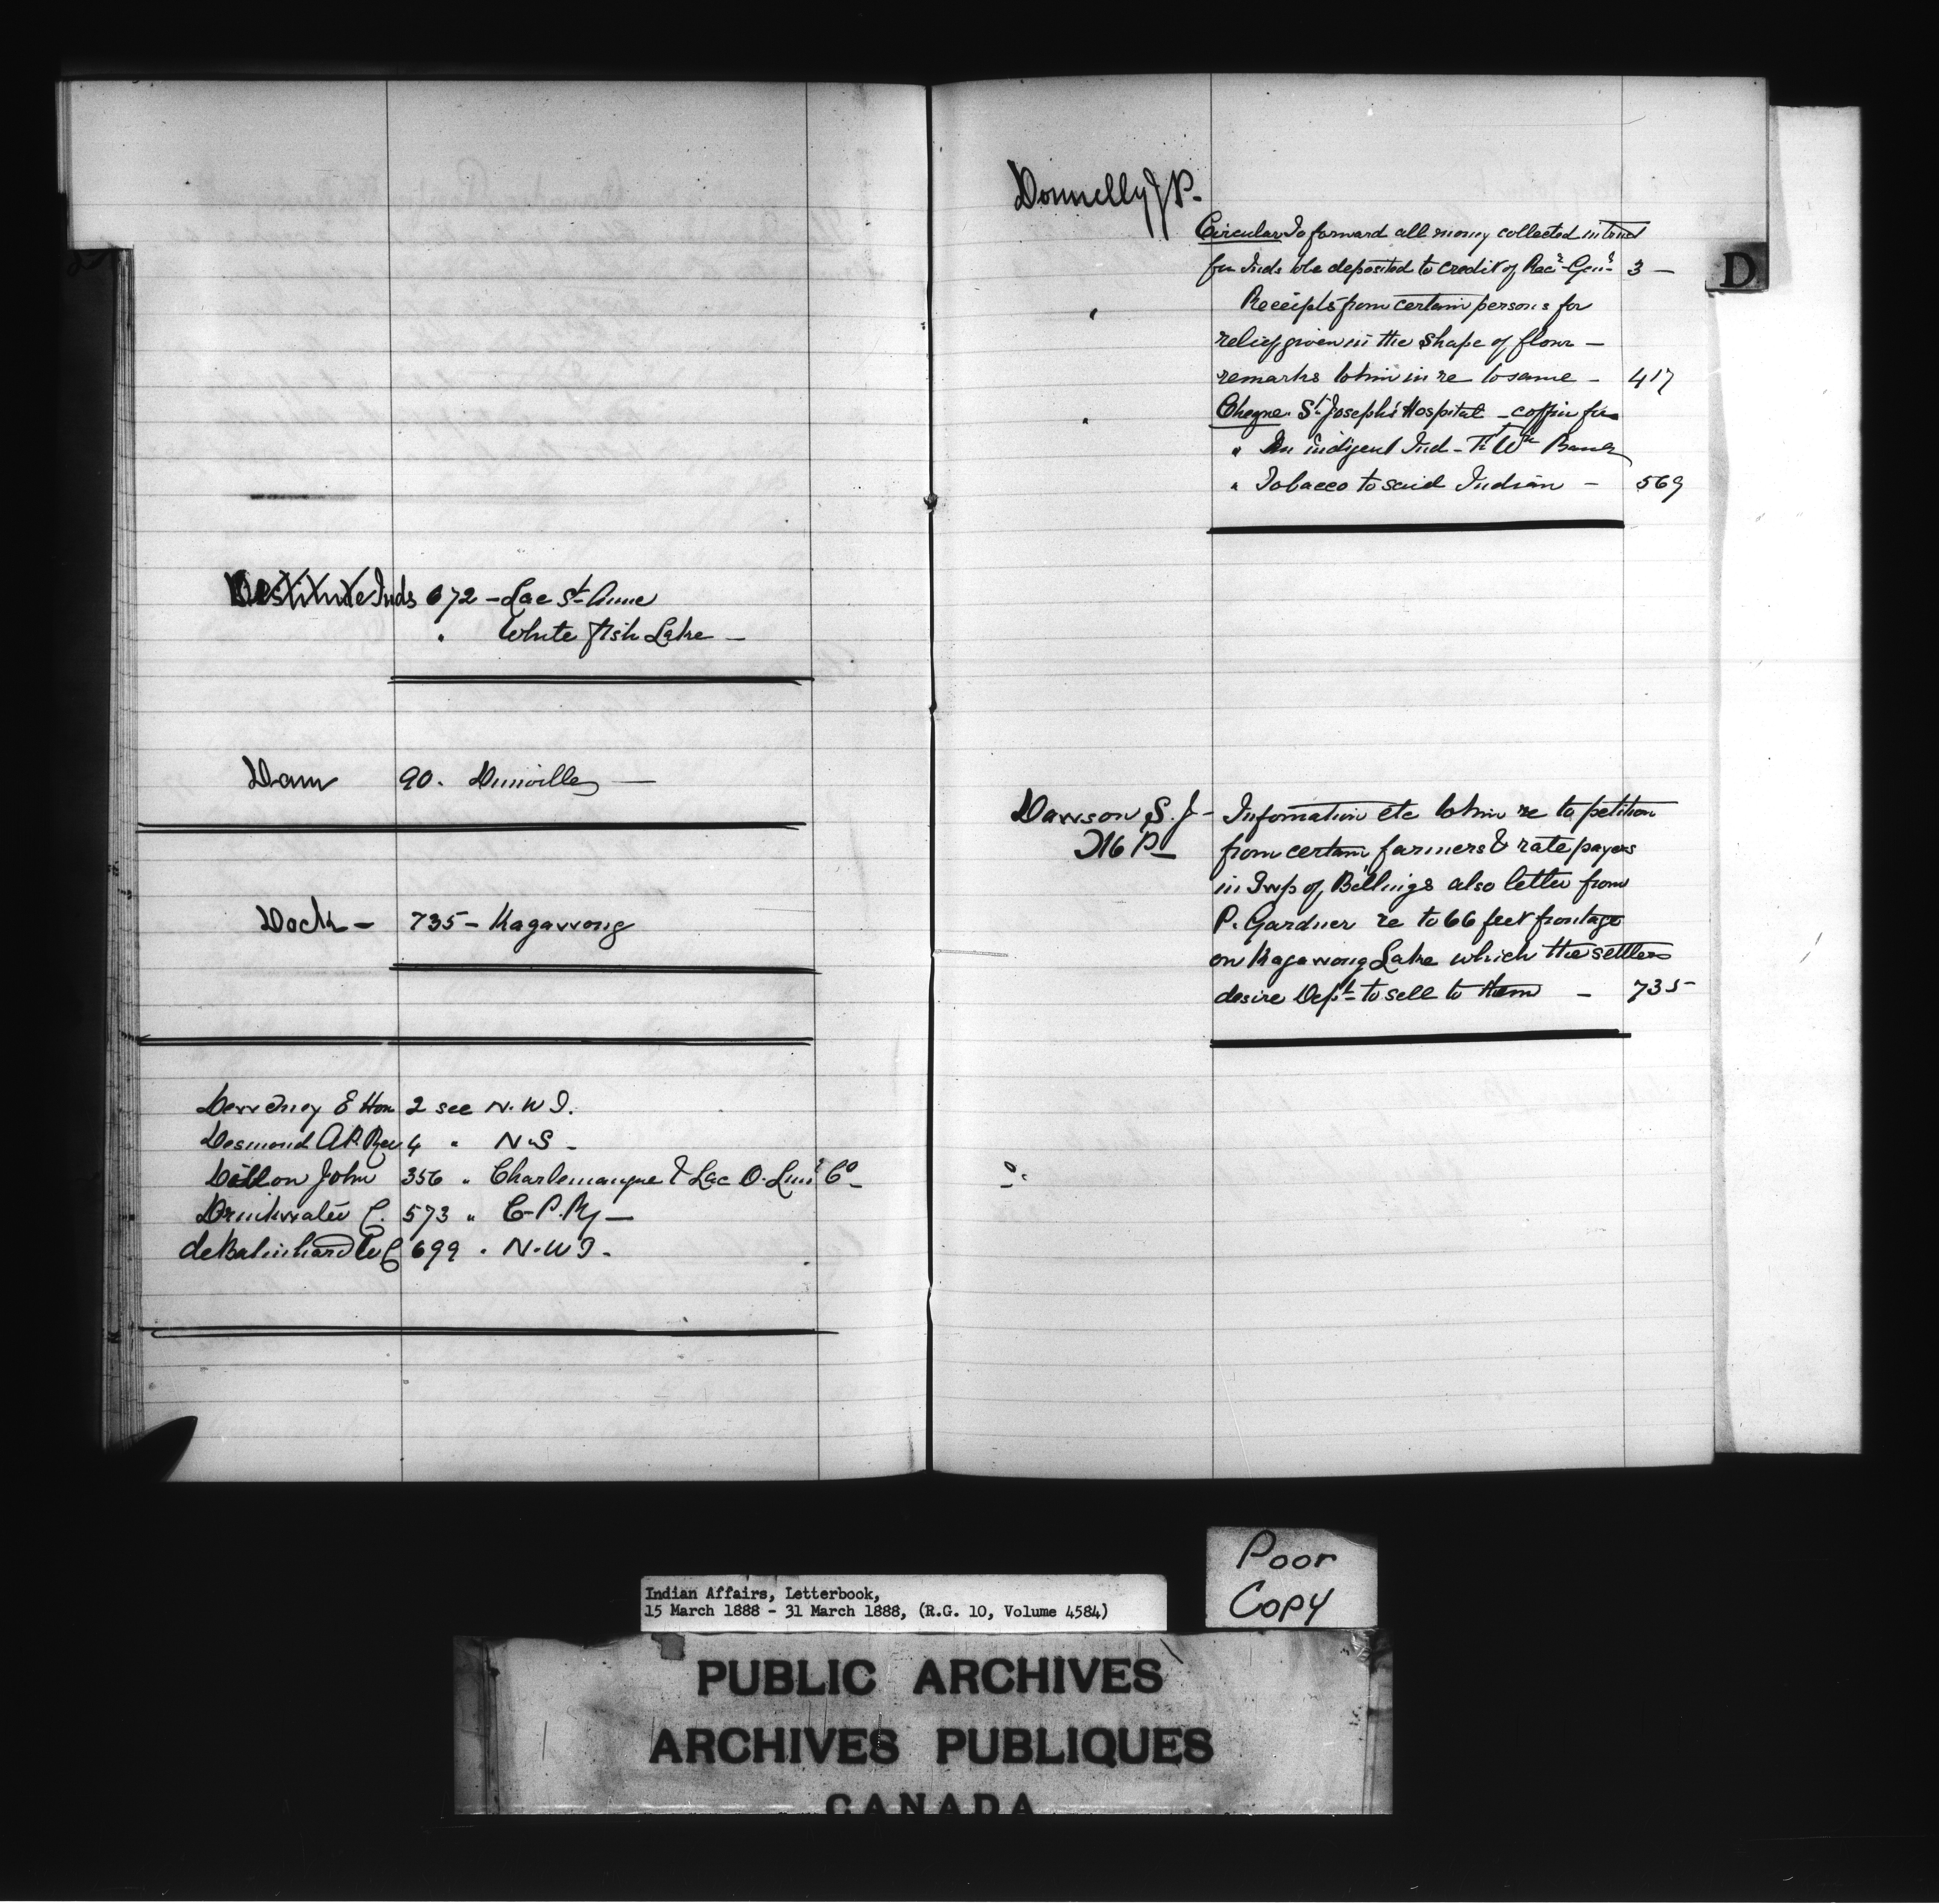 Destitute Inds 672 - Lac St. Anne
" White Fish Lake -
Dam 90. Dunville -
Dock - 735 - Kagawong
Dewdney E Hon 2 see N.W.T.
Desmond A.P. Rev 4 " N.S -
Dillon John 356 " Charlemangue & Lac O. Lumr Co -
Drinkwater C. 573 " C.P.Ry -
de Balinhard W C 699 " N.W.T. -
Donnelly J P. -
Circular To forward all money collected in trust
for Inds to be deposited to credit of Recr Genl 3 -
" Receipts from certain persons for
relief given in the shape of flour -
remarks to him in re to same - 417
" Cheque St. Joseph's Hospital - coffin for
" An indigent Ind - Ft Wm Band
" Tobacco to said Indian - 569
Dawson S. J - Information etc to him re to petition
M P - from certain farmers & rate payers
in Twp of Billings also letter from
P. Gardner re to 66 feet frontage
on Kagawong Lake which the settlers
desire Dept. to sell to them - 735
D
Poor
Copy
Indian Affairs, Letterbook,
15 March 1888 - 31 March 1888, (R.G. 10, Volume 4584)
PUBLIC ARCHIVES
ARCHIVES PUBLIQUES
CANADA